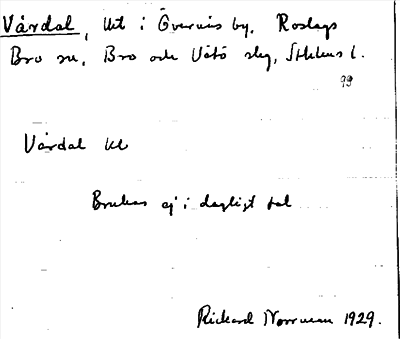 Vårdal, lht i Överväs by, Roslags
Bro sn, Bro och Vätö slg, Sthlms l.
99
Vårdal lht
Brukas ej i dagligt tal
Rickard Norrman 1929.